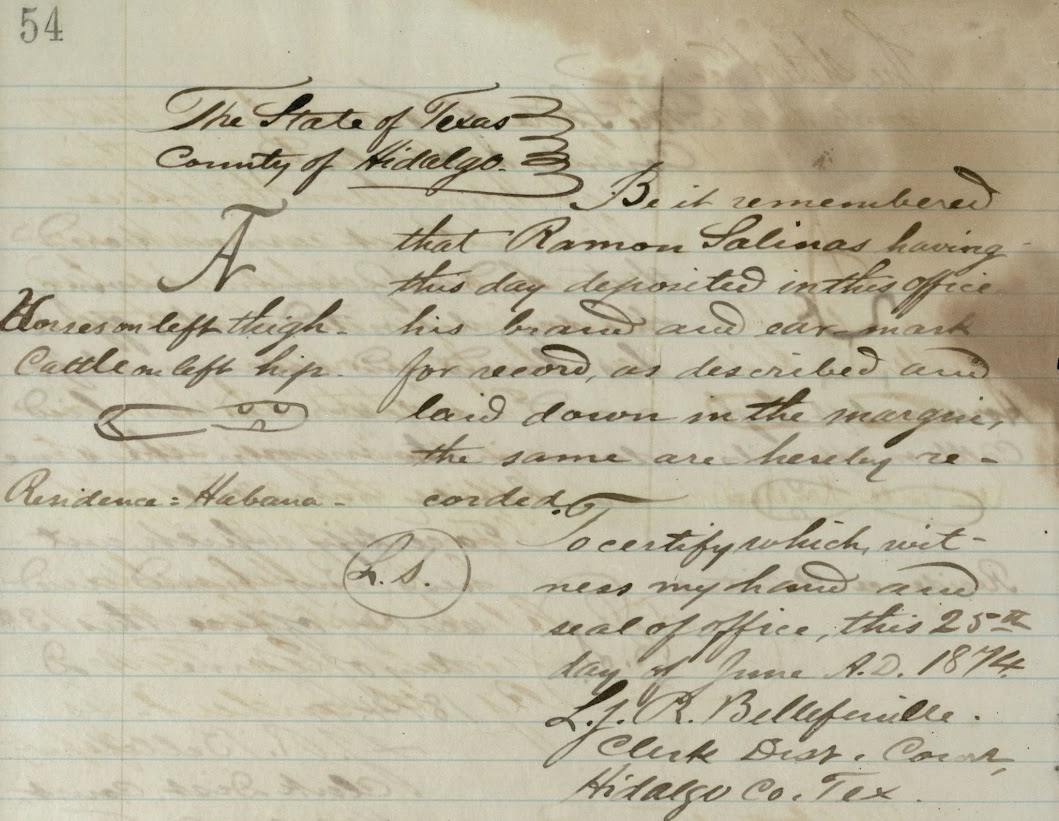 54
The State of Texas
County of Hidalgo.
Be it remembered
that Ramon Salinas having
this day deposited in this office
his brand and ear mark
for record, as described and
laid down in the margin,
the same are hereby re-
corded.
Horses on left thigh.
Cattle on left hip.
Residence = Habana -
To certify which, wit-
ness my hand and
seal of office, this 25th
day of June A.D. 1874.
L.S.
L. J. R. Bellefeuille.
Clerk Dist. Court,
Hidalgo Co. Tex.